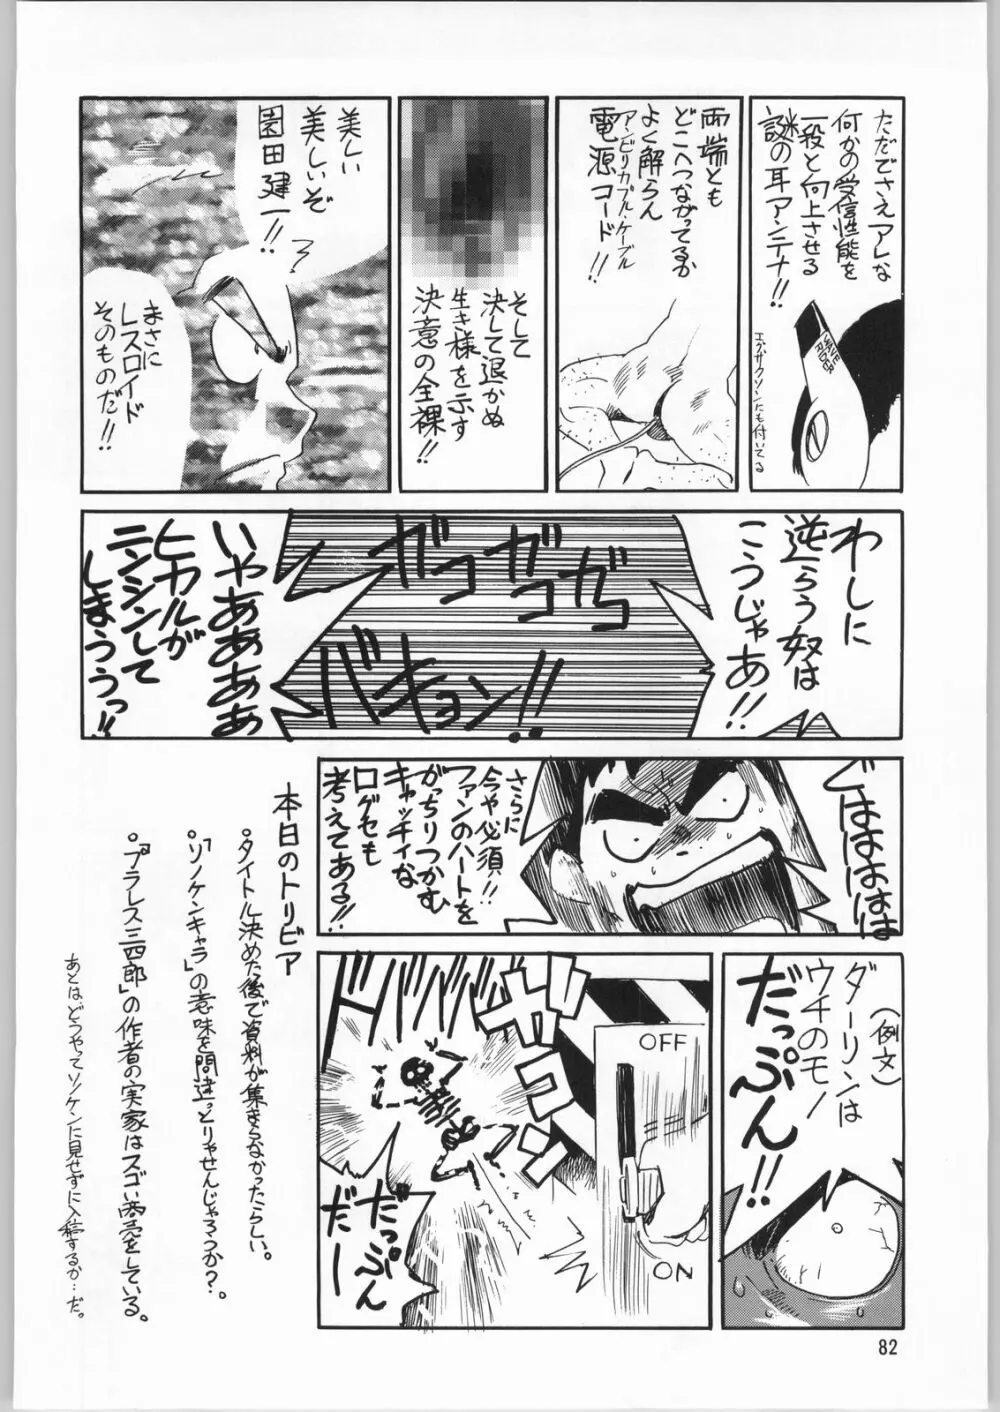 ただでさえアレな
何かの受信性能を
一段と向上させる
謎の耳アンテナ!!
WAVE
RIDER
エクザクソンにも付いてる
両端とも
どこへつながってるか
よく解らん
アンビリカブル・ケーブル
電源コード!!
そして
決して退かぬ
生き様を示す
決意の全裸!!
美しい
美しいぞ
園田健一!!
まさに
レスロイド
そのものだ!!
わしに
逆らう奴は
こうじゃあ!!
ガコ
ガコ
ガガ
バキョン!!
いやああああぁ
ヒカルが
ニンシンして
しまううっ!!
どはははは
さらに
今や必須!!
ファンのハートを
がっちりつかむ
キャッチィな
口グセも
考えてある!!
(例文)
ダーリンは
ウチのモノ
だっぷん!!
OFF
ON
ガコン
だっぷん
だー
本日のトリビア
・タイトル決めた後で資料が集まらなかったらしい。
・「ソノケンキャラ」の意味を間違っとりゃせんじゃろうか?。
・「プラレス三四郎」の作者の実家はスゴい商売をしている。
あとはどうやってソノケンに見せずに入稿するか…だ。
82